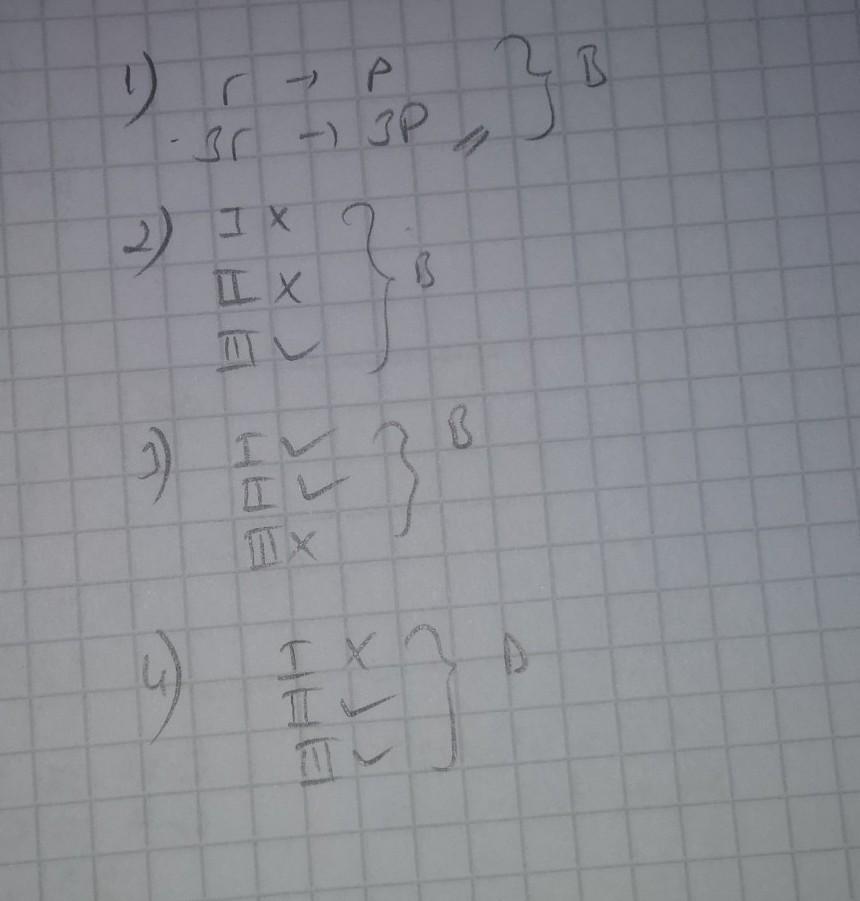 1) r → P } B
3r → 3P
2) I X
II X } B
III ✓
3) I ✓ } B
II ✓
III X
4) I X } D
II ✓
III ✓